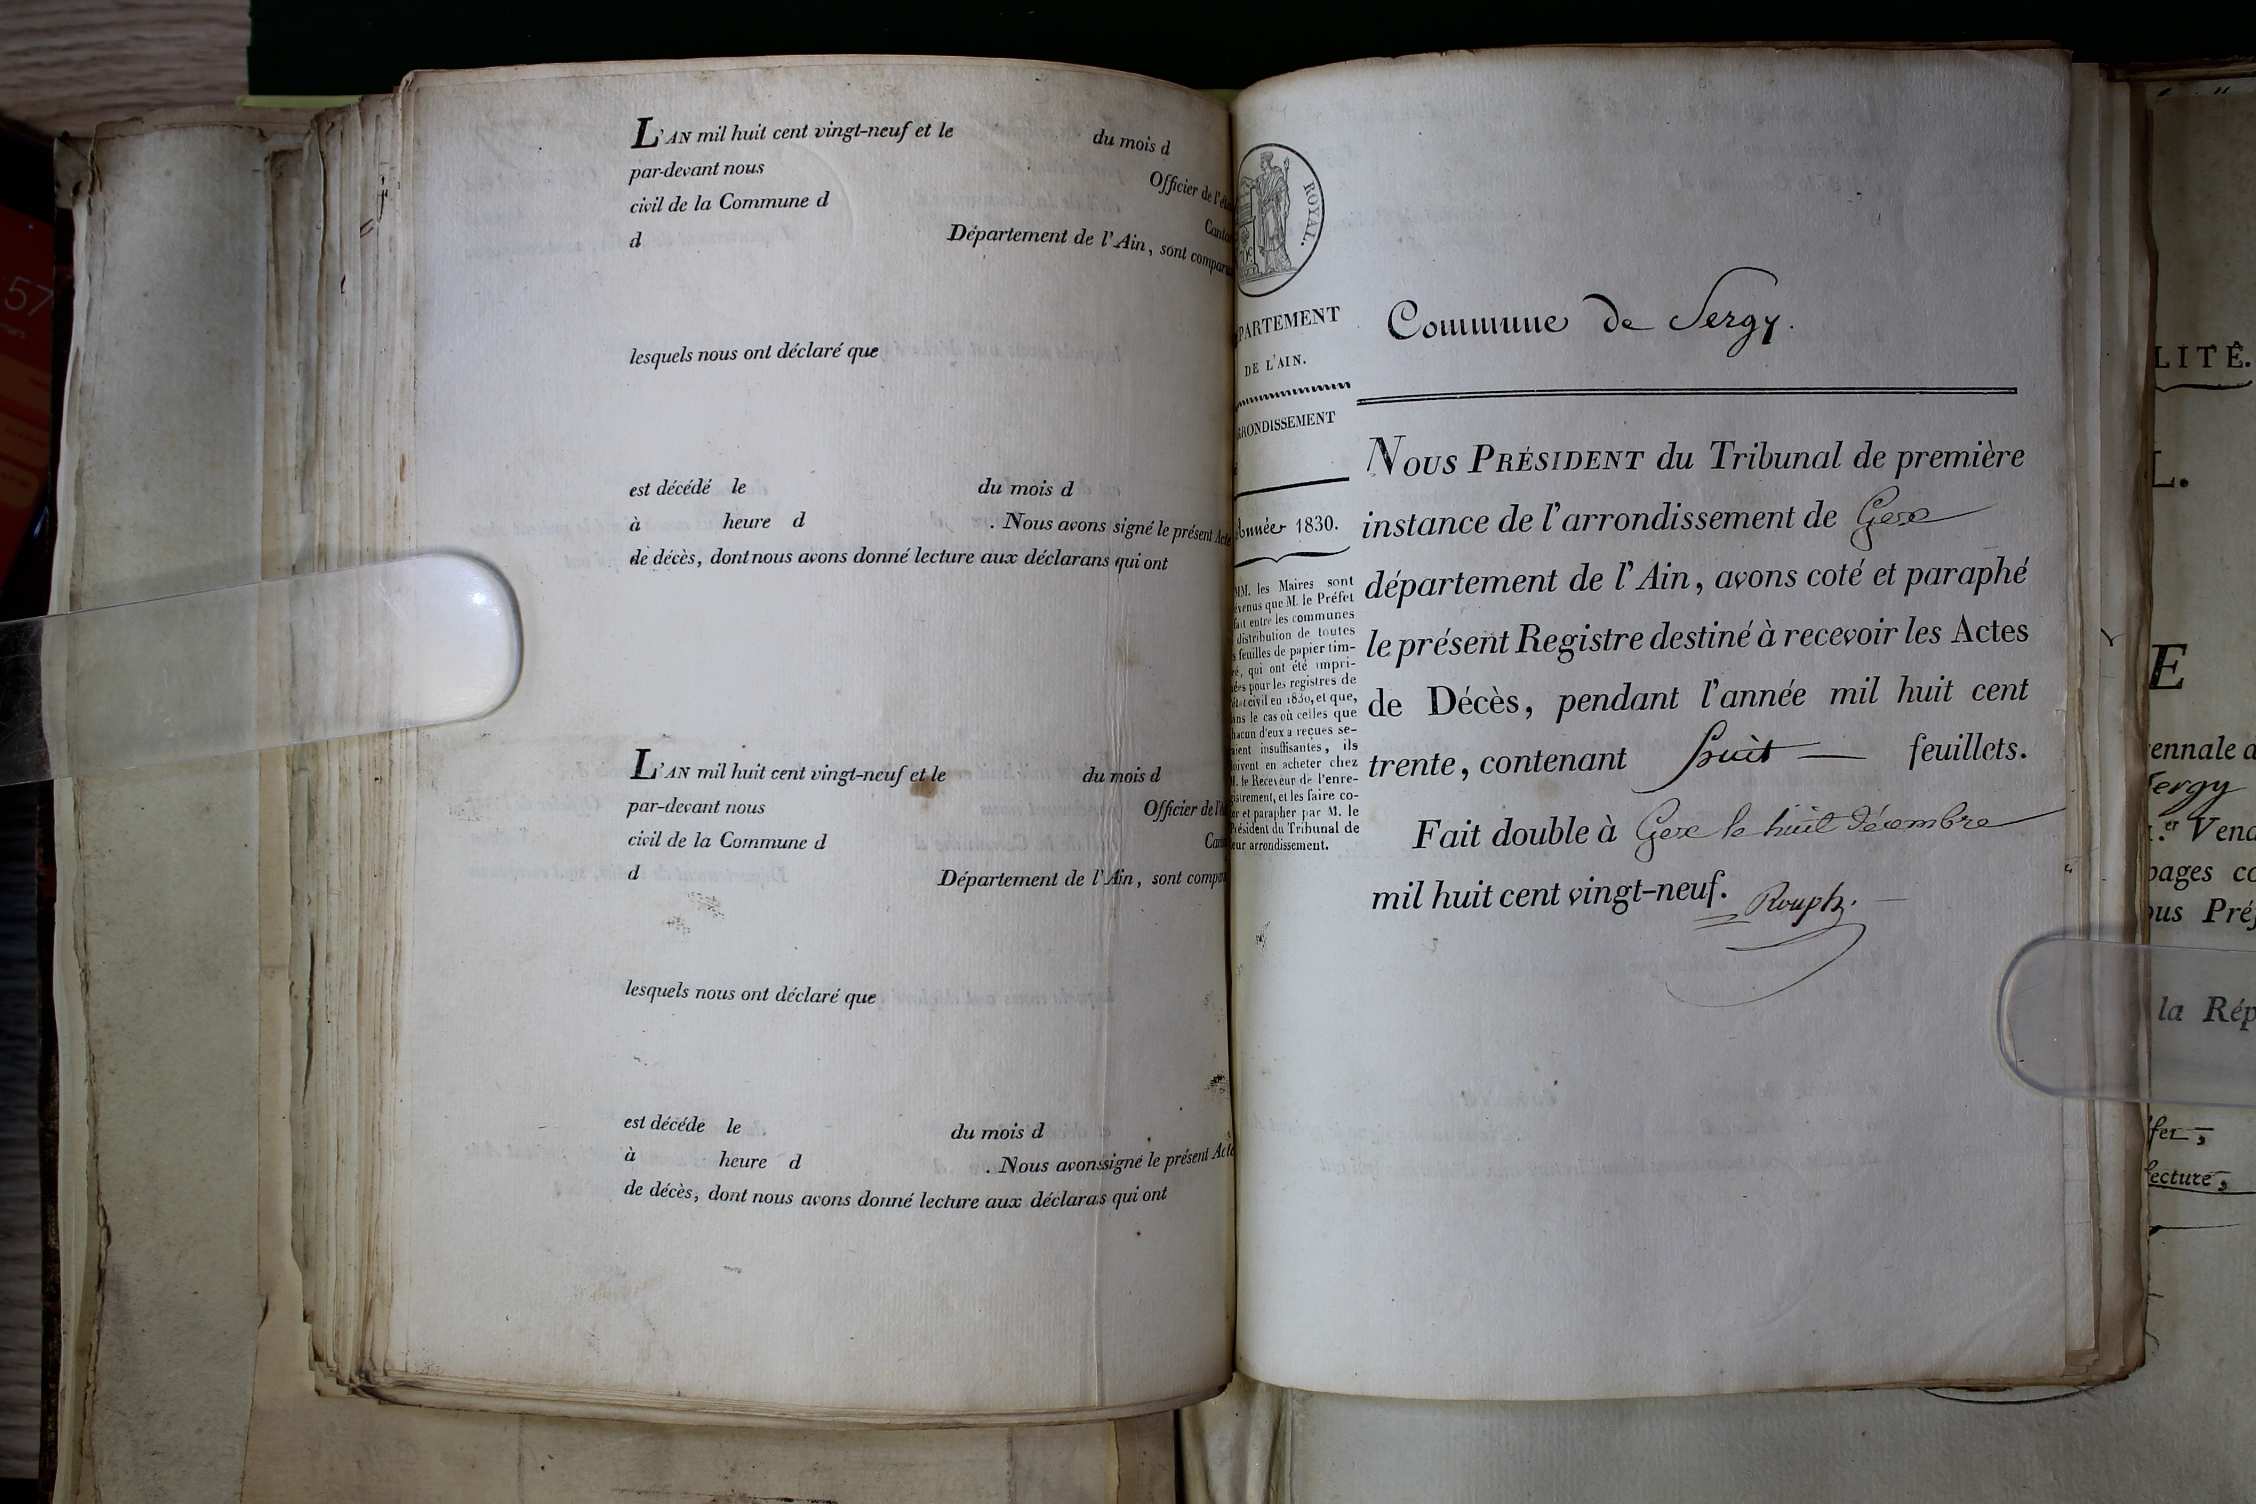 L'AN mil huit cent vingt-neuf et le du mois d
par-devant nous Officier de l'ét
civil de la Commune d Canton
d Département de l'Ain, sont comparu
lesquels nous ont déclaré que
est décédé le du mois d
à heure d . Nous avons signé le présent Acte
de décès, dont nous avons donné lecture aux déclarans qui ont
L'AN mil huit cent vingt-neuf et le du mois d
par-devant nous Officier de l'é
civil de la Commune d Can
d Département de l'Ain, sont compar
lesquels nous ont déclaré que
est décéde le du mois d
à heure d . Nous avons signé le présent Acte
de décès, dont nous avons donné lecture aux déclaras qui ont
ROYAL.
PARTEMENT
DE L'AIN.
RONDISSEMENT
Année 1830.
MM. les Maires sont
évenus que M. le Préfet
fait entre les communes
distribution de toutes
s feuilles de papier tim-
ré, qui ont été impri-
ées pour les registres de
état civil en 1830, et que,
ans le cas où celles que
hacun d'eux a reçues se-
aient insuffisantes, ils
oivent en acheter chez
M. le Receveur de l'enre-
istrement, et les faire co-
er et parapher par M. le
Président du Tribunal de
eur arrondissement.
Commune de Sergy.
NOUS PRÉSIDENT du Tribunal de première
instance de l'arrondissement de Gex
département de l'Ain, avons coté et paraphé
le présent Registre destiné à recevoir les Actes
de Décès, pendant l'année mil huit cent
trente, contenant huit feuillets.
Fait double à Gex le huit décembre
mil huit cent vingt-neuf. Rouph.
57
LITÉ.
L.
E
ennale d
Sergy
er Vend
pages co
ous Préf
la Rép
fer,
lecture,